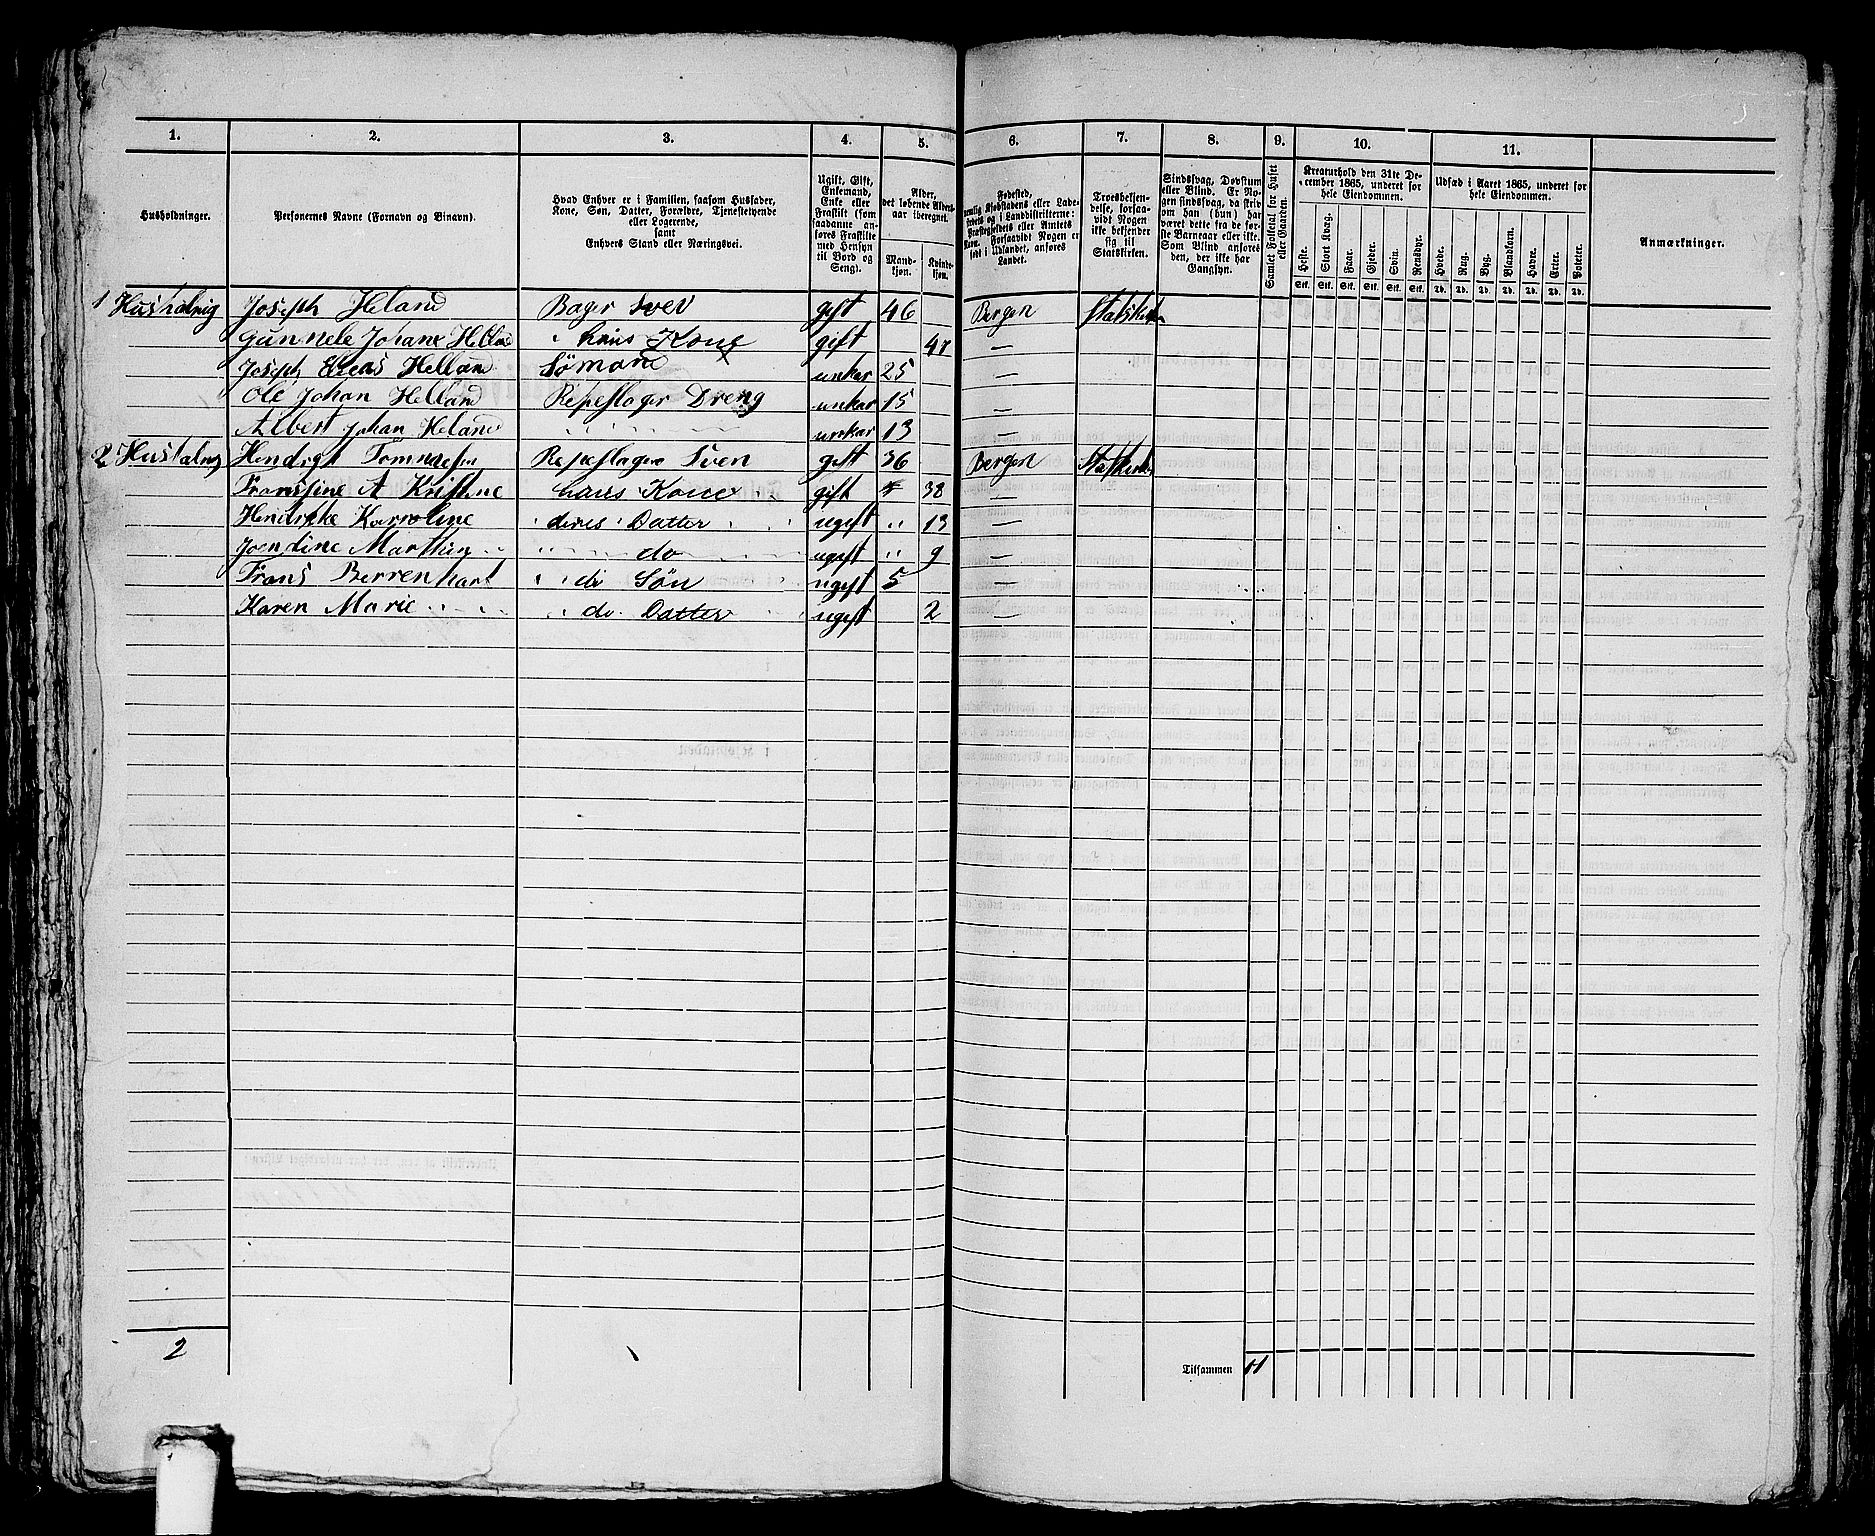 1. 2. 3. 4. 5. 6. 7. 8. 9. 10. 11.
Husholdninger.
Personernes Navne (Fornavn og Binavn).
Hvad Enhver er i Familien, saasom Husfader,
Kone, Søn, Datter, Forældre, Tjenestetyende
eller Logerende,
samt
Enhvers Stand eller Næringsvei.
Ugift, Gift,
Enkemand,
Enke eller
Fraskilt (som
saadanne an-
føres Fraskilte
med Hensyn
til Bord og
Seng).
Alder,
det løbende Alders-
aar iberegnet.
Mand-
kjøn.
Kvinde-
kjøn.
Fødested,
Landet.
Troesbekjen-
delse, forsaa-
vidt Nogen
ikke bekjender
sig til
Statskirken.
Sindssvag, Døvstum
eller Blind. Er No-
gen sindssvag, da skriv
om han (hun) har
været dette fra de før-
ste Barneaar eller ikke.
Som Blind anføres
den, der ikke har
Gangsyn.
Samlet Folketal for Huset
eller Gaarden.
Kreaturhold den 31te De-
cember 1865, underet for
hele Eiendommen.
Heste. Stort Kvæg. Faar. Gjeder. Svin. Rensdyr.
Stk. Stk. Stk. Stk. Stk. Stk.
Udsæd i Aaret 1865, underet for
hele Eiendommen.
Hvede. Rug. Byg. Blandkorn. Havre. Erter. Poteter.
Td. Td. Td. Td. Td. Td. Td.
Anmærkninger.
1 Husholnig Joseph Heland Bager Svei gift 46 Bergen
Gunnele Johane Helland hans Kone gift —
Joseph Elias Helland Sømand unkar 25 —
Ole Johan Helland Repeslager Dreng unkar 15 —
Albert Johan Heland " " " unkar 13 —
2 Hendrigt Repeslager Sven gift 36 Bergen
Fransine A Kristine hans Kone gift 38 —
Karroline deres Datter ugift " 13 —
do ugift " 9 —
Frans Berrenhart do Søn ugift 5 —
Karen Marie do Datter ugift 2 —
2
Tilsammen 11